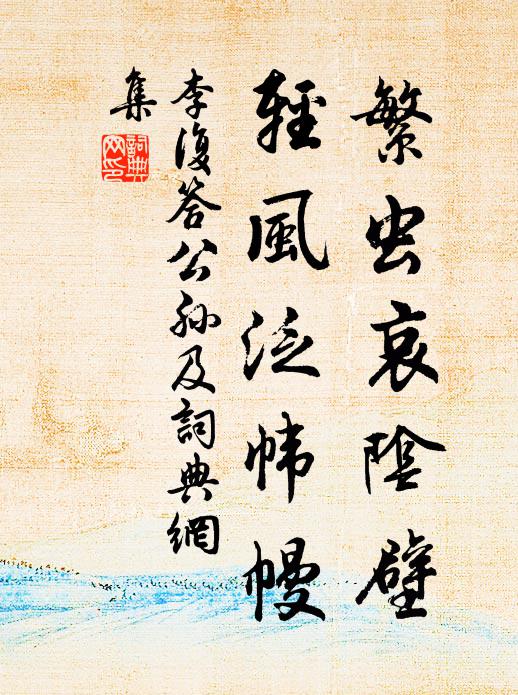 繁虫哀陰壁
輕風泛帏幔
李復答公孙及詞典網
集
詞典
网印